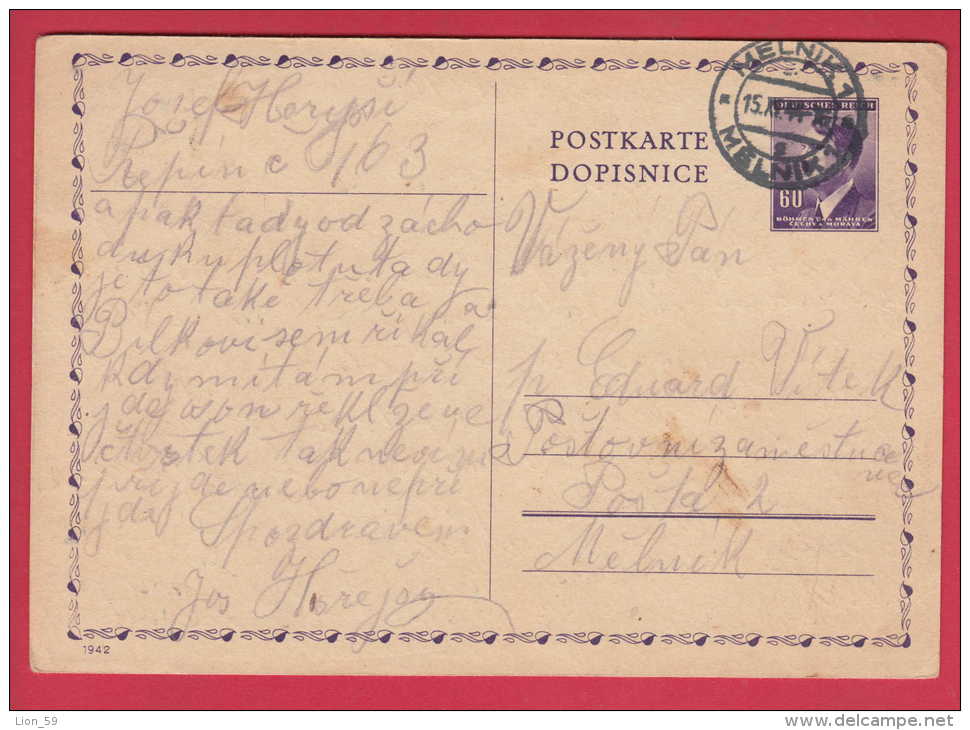 Josef Horyší
Řepín č 163
a pak tady od zácho
du ku plotu tady
je to také třeba já
Bilkovi sem říkal
kdy mi tam při
jde a on řekl že ve
čtvrtek tak nevím
přijde nebo nepři
jde S pozdravem
Jos
1942
POSTKARTE
DOPISNICE
MELNIK 1
15.XI.44
MĚLNÍK 1
DEUTSCHES REICH
60
BÖHMEN UND MÄHREN
ČECHY A MORAVA
Vážený Pán
p Eduard Vítek
Poštovní zaměstna
Pošta 2
Mělník
Lion_59
www.delcampe.net